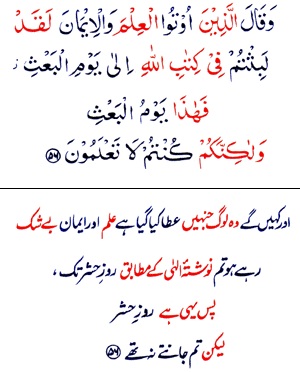 وَقَالَ الَّذِيْنَ اُوْتُوا الْعِلْمَ وَالْاِيْمَانَ لَقَدْ
لَبِثْتُمْ فِيْ كِتٰبِ اللّٰهِ اِلٰى يَوْمِ الْبَعْثِ ز
فَهٰذَا يَوْمُ الْبَعْثِ
وَلٰكِنَّكُمْ كُنْتُمْ لَا تَعْلَمُوْنَ ﴿۵۶﴾
اور کہیں گے وہ لوگ جنہیں عطا کیا گیا ہے علم اور ایمان بے شک
رہے ہو تم نوشتۂ الٰہی کے مطابق روزِ حشر تک ،
پس یہی ہے روزِ حشر
لیکن تم جانتے نہ تھے ﴿۵۶﴾